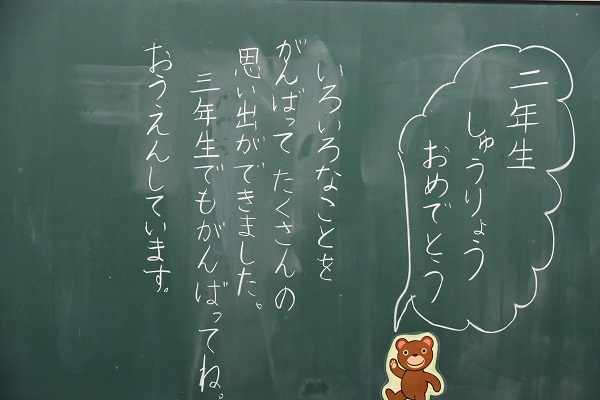 二年生
しゅうりょう
おめでとう
いろいろなことを
がんばって たくさんの
思い出ができました。
三年生でもがんばってね。
おうえんしています。